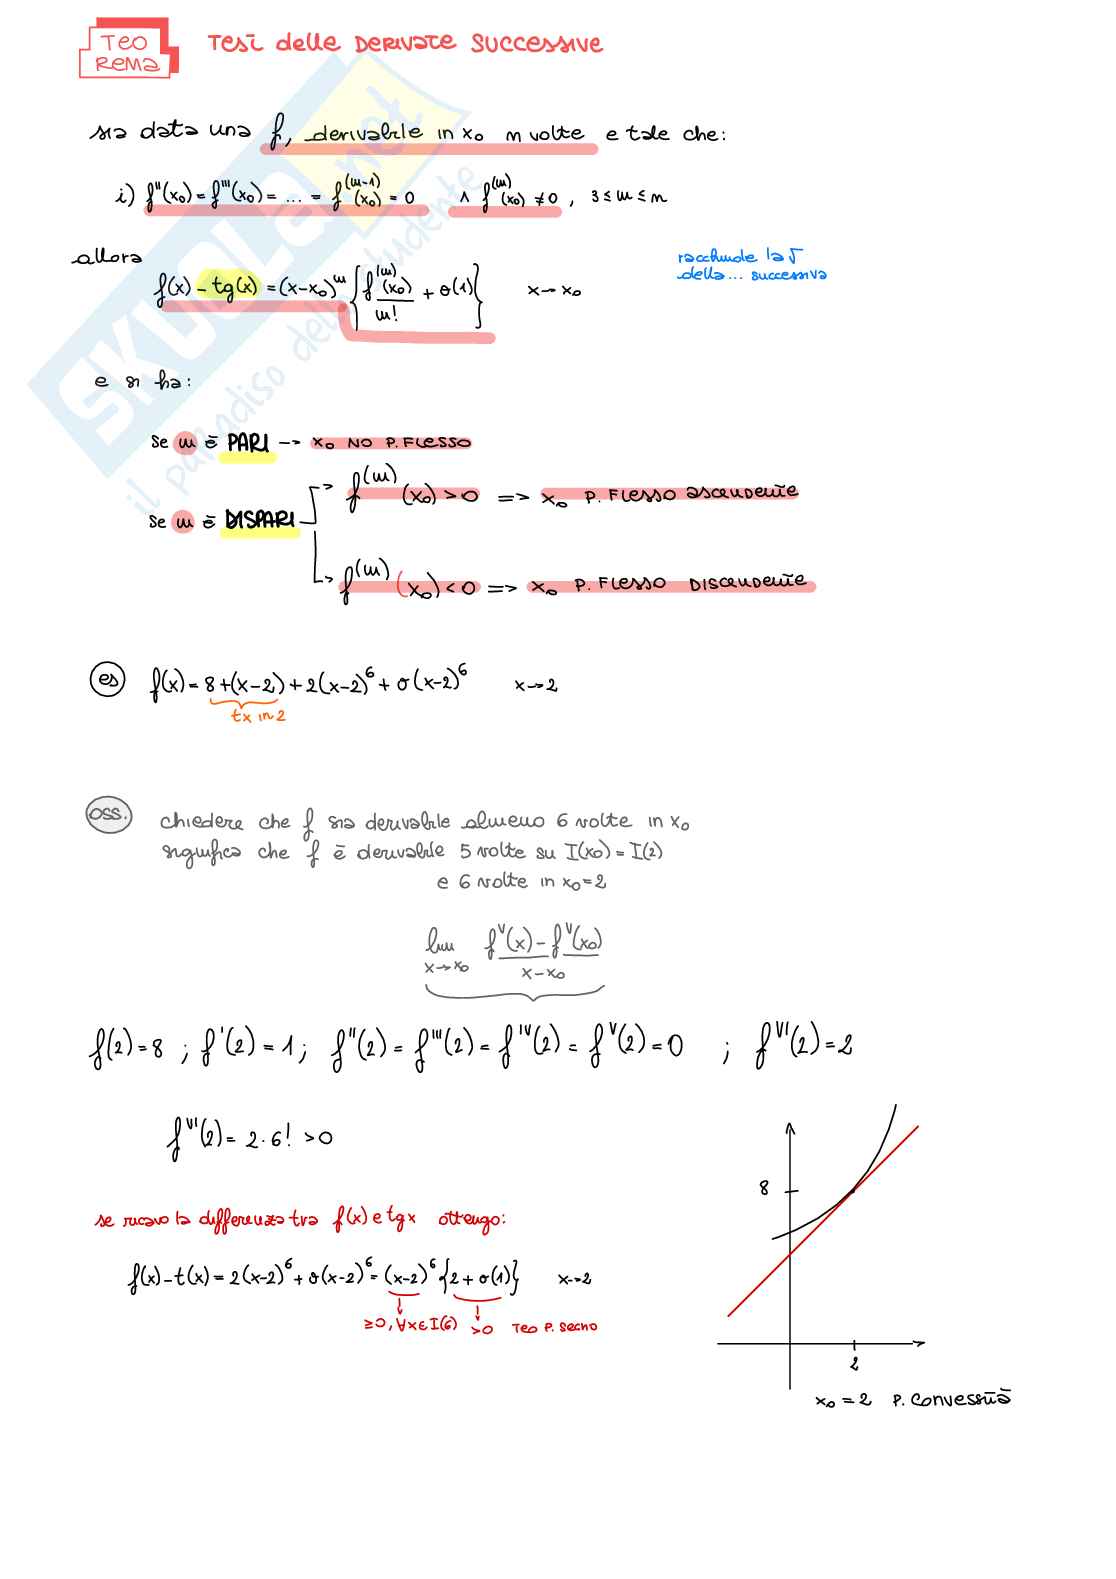 TEO
REMA
TEST delle DERIVATE SUCCESSIVE
sia data una f, derivabile in x₀ n volte e tale che:
i) f''(x₀) = f'''(x₀) = ... = f^(m-1)(x₀) = 0 ∧ f^(m)(x₀) ≠ 0, 3 ≤ m ≤ n
allora
f(x) - tg(x) = (x-x₀)^m { f^(m)(x₀) / m! + o(1) } x → x₀
racchiude la f
della ... successiva
e si ha:
se m è PARI → x₀ NO P. FLESSO
f^(m)(x₀) > 0 => x₀ P. FLESSO ascendente
se m è DISPARI
f^(m)(x₀) < 0 => x₀ P. FLESSO DISCENDENTE
es f(x) = 8 + (x-2) + 2(x-2)⁶ + o(x-2)⁶ x → 2
tx in 2
oss. chiedere che f sia derivabile almeno 6 volte in x₀
significa che f è derivabile 5 volte su I(x₀) = I(2)
e 6 volte in x₀ = 2
lim x→x₀ f^V(x) - f^V(x₀) / x - x₀
f(2) = 8 ; f'(2) = 1 ; f''(2) = f'''(2) = f^IV(2) = f^V(2) = 0 ; f^VI(2) = 2
f^VI(2) = 2 · 6! > 0
8
se ricavo la differenza tra f(x) e tgx ottengo:
f(x) - t(x) = 2(x-2)⁶ + o(x-2)⁶ = (x-2)⁶ {2 + o(1)} x → 2
≥0, ∀x∈I(6) >0 TEO P. SEGNO
2
x₀ = 2 P. CONVESSITÀ
SKUOLA.net
il paradiso dello studente